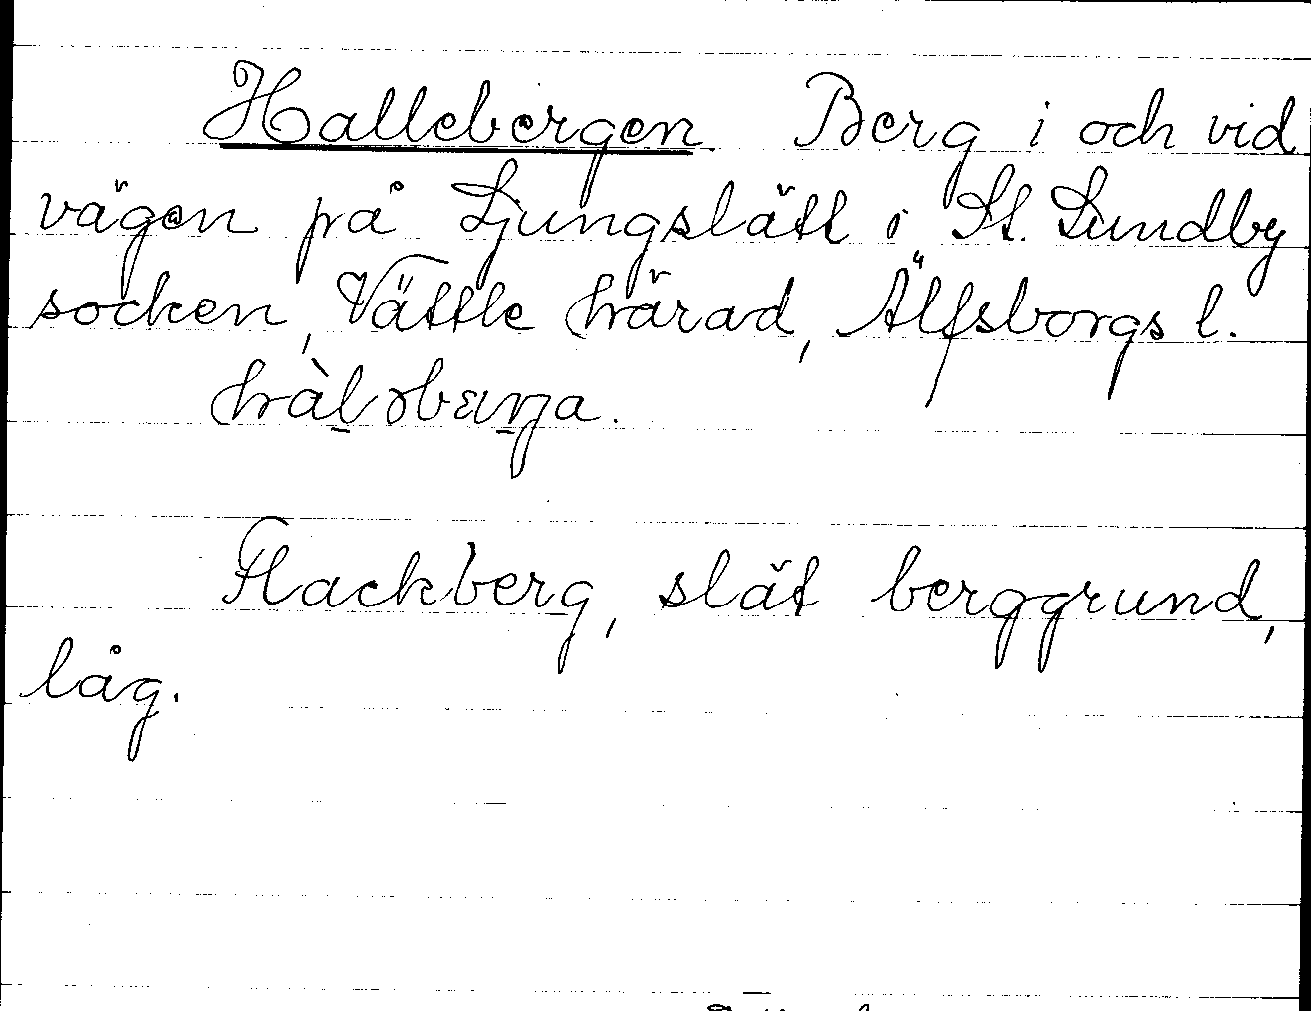 Hallebergen. Berg i och vid
vägen på Ljungslätt i St. Lundby
socken, Vättle härad, Älfsborgs l.
Flackberg, slät berggrund,
låg.